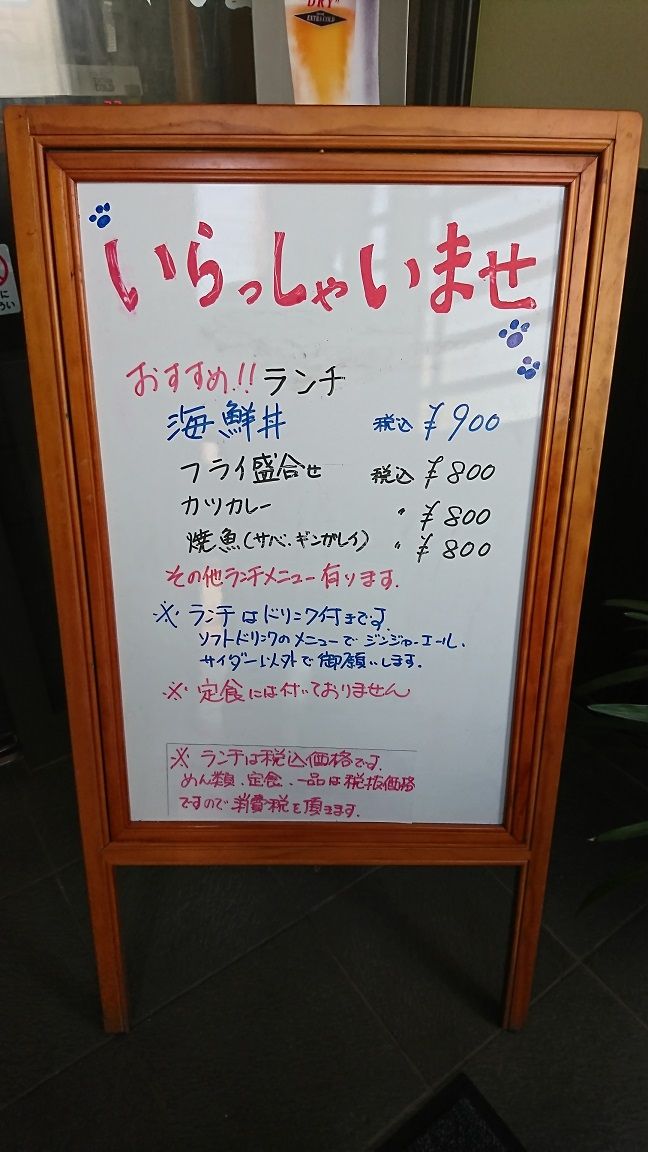 DRY
EXTRA COLD
いらっしゃいませ
おすすめ!! ランチ
海鮮丼 税込 ¥900
フライ盛合せ 税込 ¥800
カツカレー 〃 ¥800
焼魚(サバ・ギンガレイ) 〃 ¥800
その他ランチメニュー有ります.
※ ランチはドリンク付きです.
ソフトドリンクのメニューでジンジャーエール、
サイダー以外で御願いします.
※ 定食には付いておりません
※ ランチは税込価格です.
めん類、定食、一品は税抜価格
ですので消費税を頂きます.